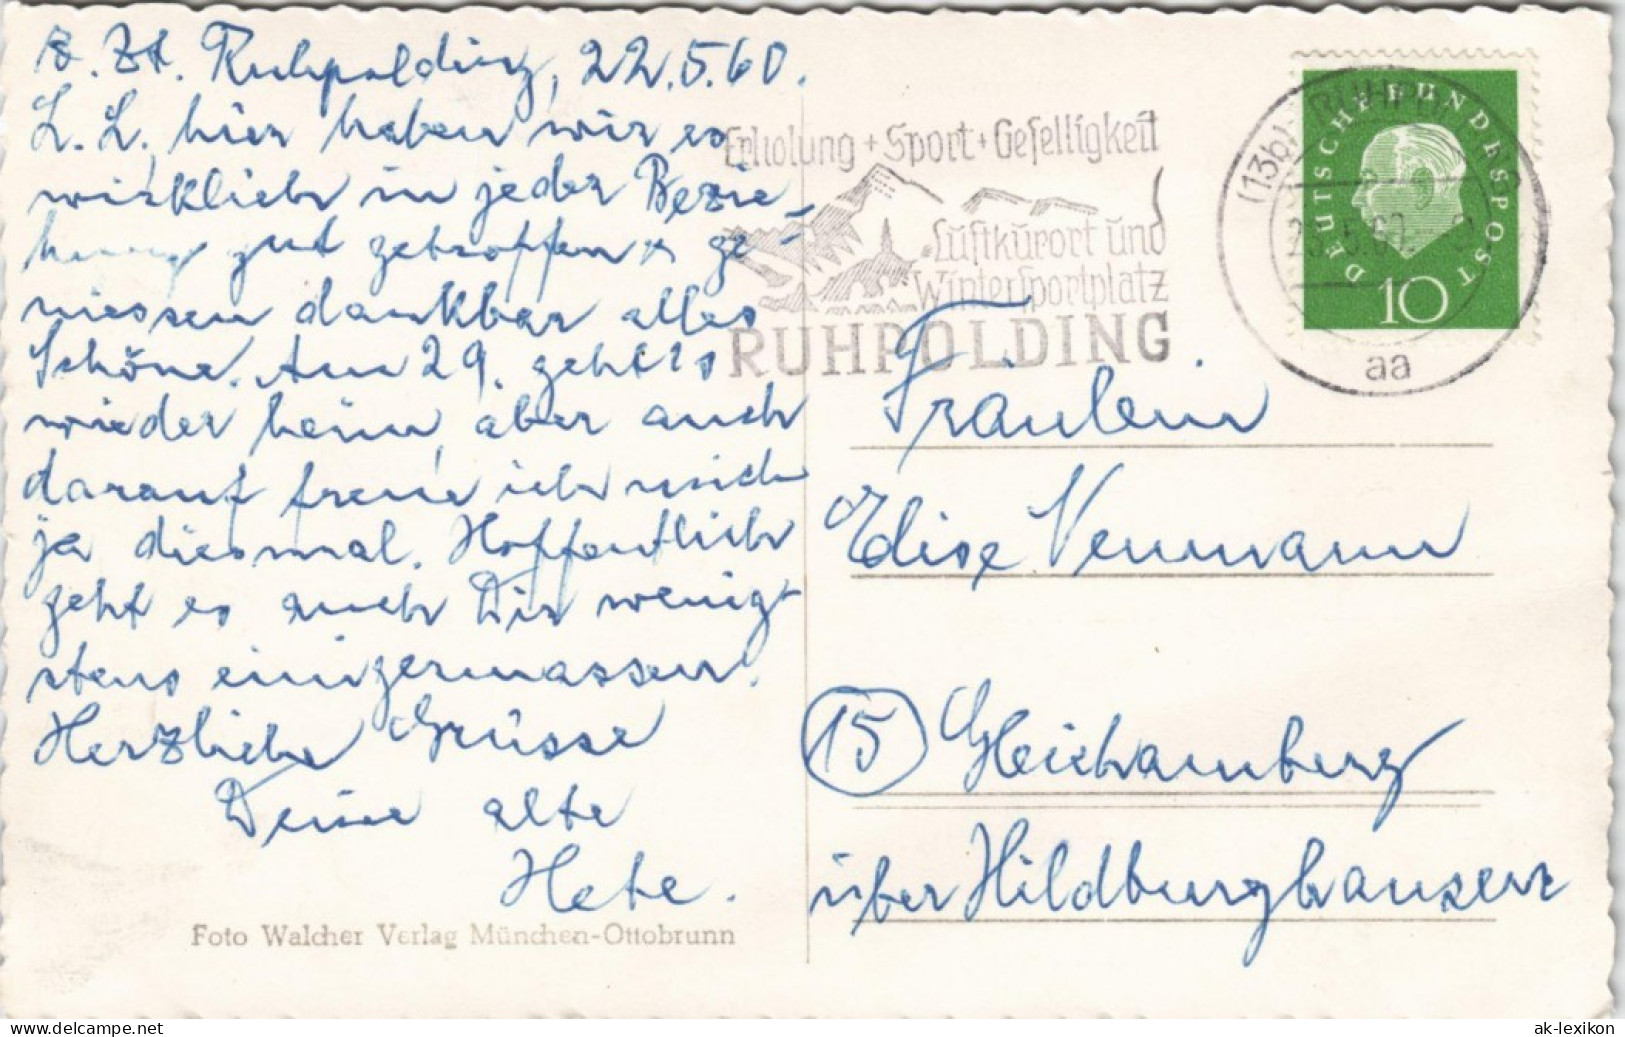 z. Zt. Ruhpolding, 22.5.60.
L. L., hier haben wir es
wirklich in jeder Bezie-
hung gut getroffen u. ge-
niessen dankbar alles
Schöne. Am 29. geht's
wieder heim, aber auch
darauf freue ich mich
ja diesmal. Hoffentlich
geht es auch Dir wenig-
stens einigermassen.
Herzliche Grüsse
Deine alte
Hete.
Foto Walcher Verlag München-Ottobrunn
Erholung + Sport + Geselligkeit
Luftkurort und
Wintersportplatz
RUHPOLDING
(13b) RUHPOLDING
aa
DEUTSCHE BUNDESPOST
10
Fräulein
Elise Neumann
(15) Gleichamberg
über Hildburghausen
ak-lexikon.de